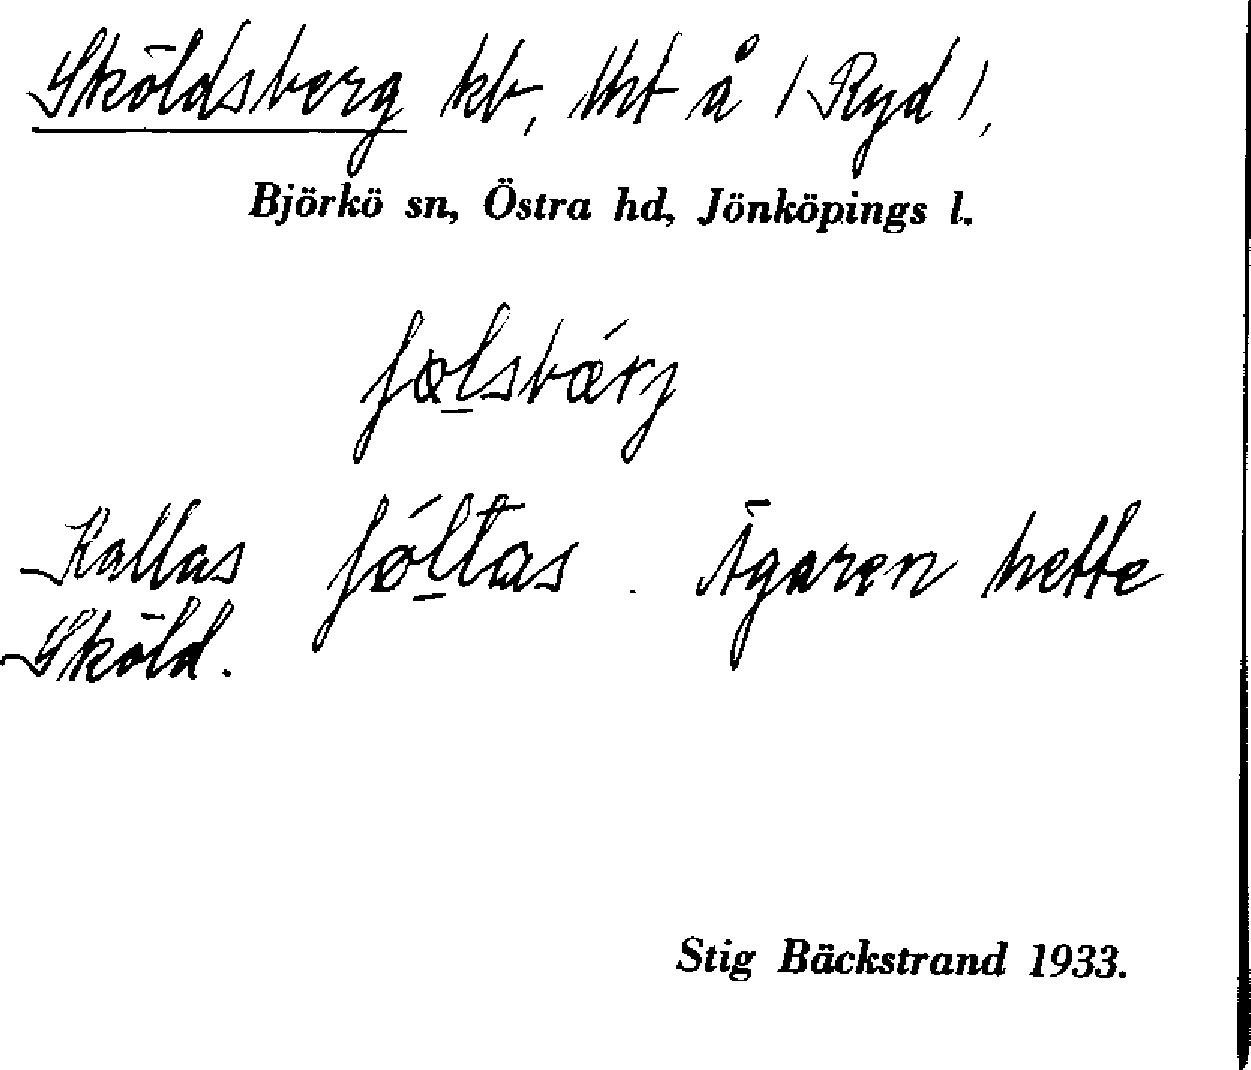 Sköldsberg kb, tht å /Ryd/,
Björkö sn, Östra hd, Jönköpings l.
ʃølsbǽrj
Kallas ʃǿltas. Ägaren hette
Sköld.
Stig Bäckstrand 1933.